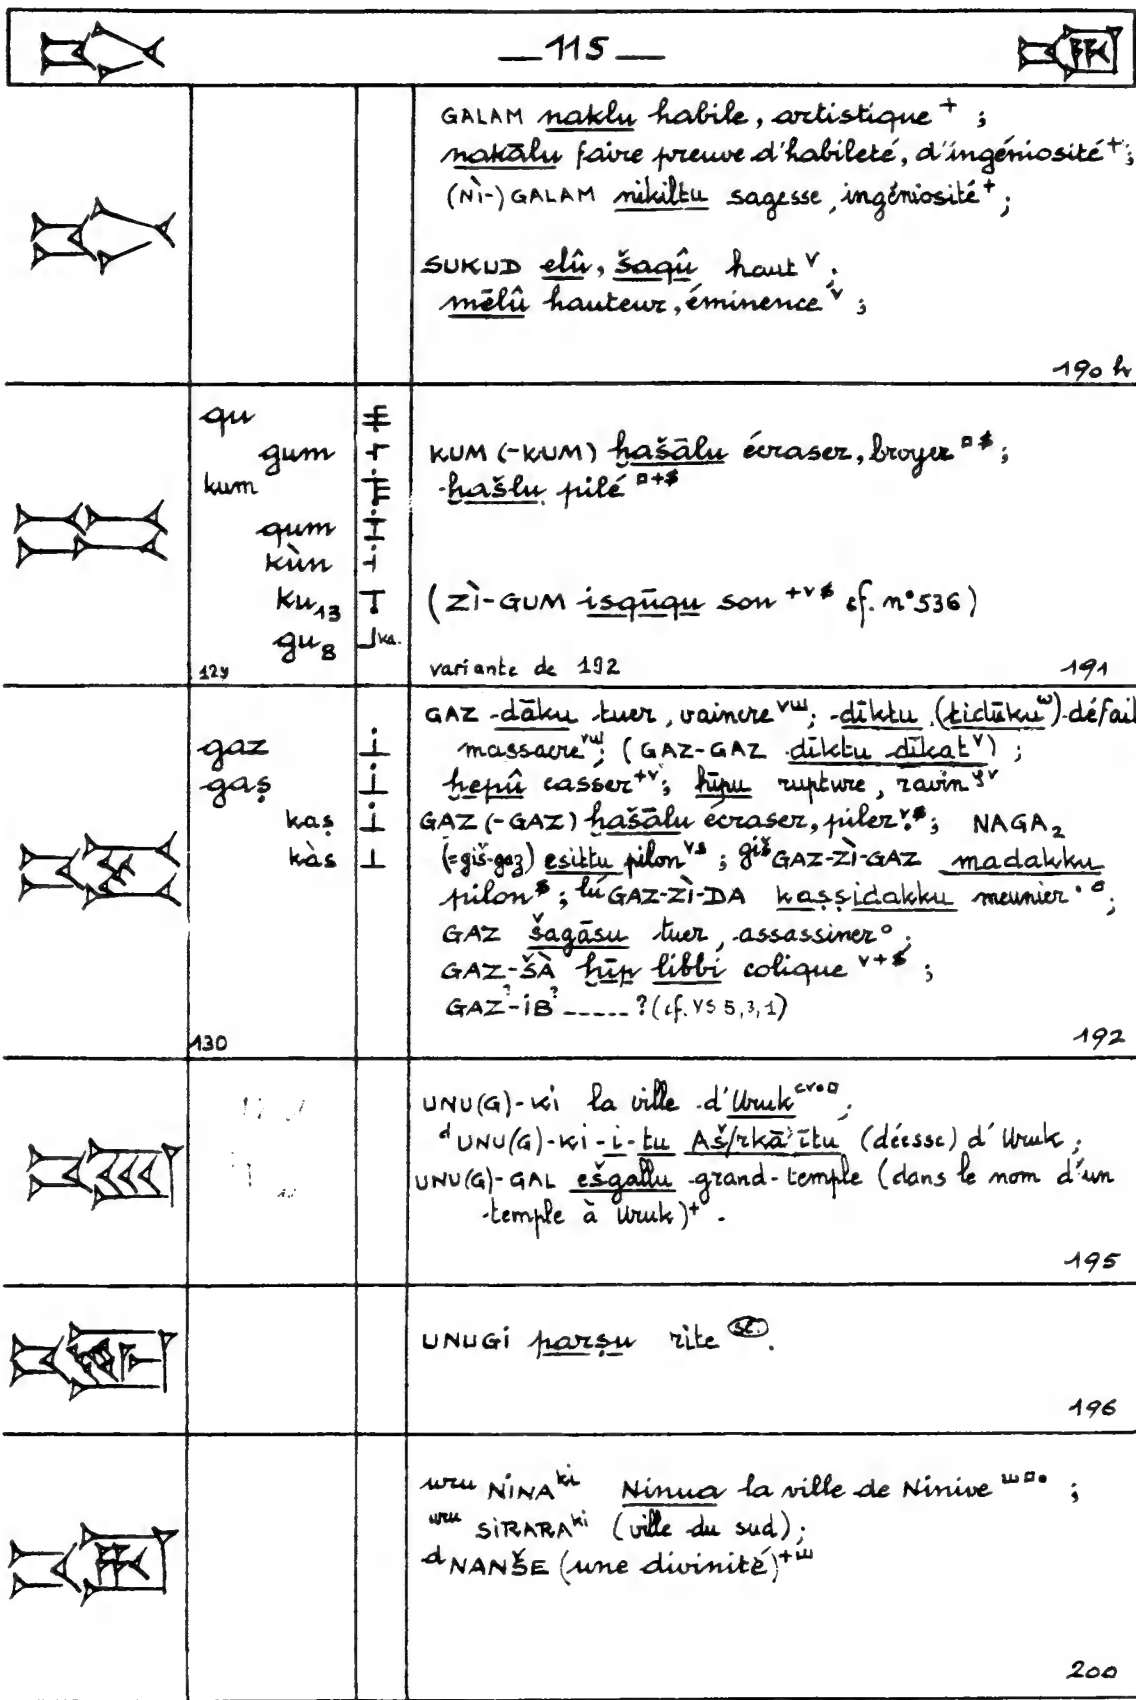 — 115 —
GALAM naklu habile, artistique + ;
nakālu faire preuve d'habileté, d'ingéniosité + ;
(NÌ-) GALAM nikiltu sagesse, ingéniosité + ;
SUKUD elû, šaqû haut v ;
mēlû hauteur, éminence v ;
190 h
qu
gum
kum
qum
kùn
ku₁₃
gu₈ ka.
129
KUM (-KUM) ḫašālu écraser, broyer ;
ḫašlu pilé
(ZÌ-GUM isqūqu son cf. n° 536)
variante de 192
191
gaz
gaṣ
kaṣ
kàs
130
GAZ dāku tuer, vaincre ; dīktu (tidūku) défaite
massacre ; (GAZ-GAZ dīktu dīkat v) ;
ḫepû casser +v ; ḫīpu rupture, ravin
GAZ (-GAZ) ḫašālu écraser, piler ; NAGA₂
(=giš-gaz) esittu pilon ; giš GAZ-ZÌ-GAZ madakku
pilon ; lú GAZ-ZÌ-DA kaṣṣidakku meunier ;
GAZ šagāšu tuer, assassiner ° ;
GAZ-ŠÀ ḫīp libbi colique ;
GAZ?-iB? ----- ? (cf. VS 5,3,1)
192
UNU(G)-Ki la ville d'Uruk ;
d UNU(G)-Ki-i-tu Aš/rkā'ītu (déesse) d'Uruk ;
UNU(G)-GAL ešgallu grand-temple (dans le nom d'un
temple à Uruk) + .
195
UNUGi parṣu rite .
196
uru NiNA ki Ninua la ville de Ninive ;
uru SiRARA ki (ville du sud) ;
d NANŠE (une divinité)
200